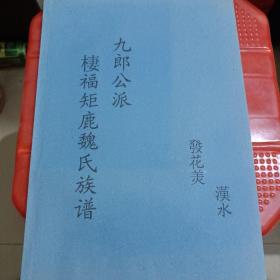 漢水
發花羡
九郎公派
棲福矩鹿魏氏族谱